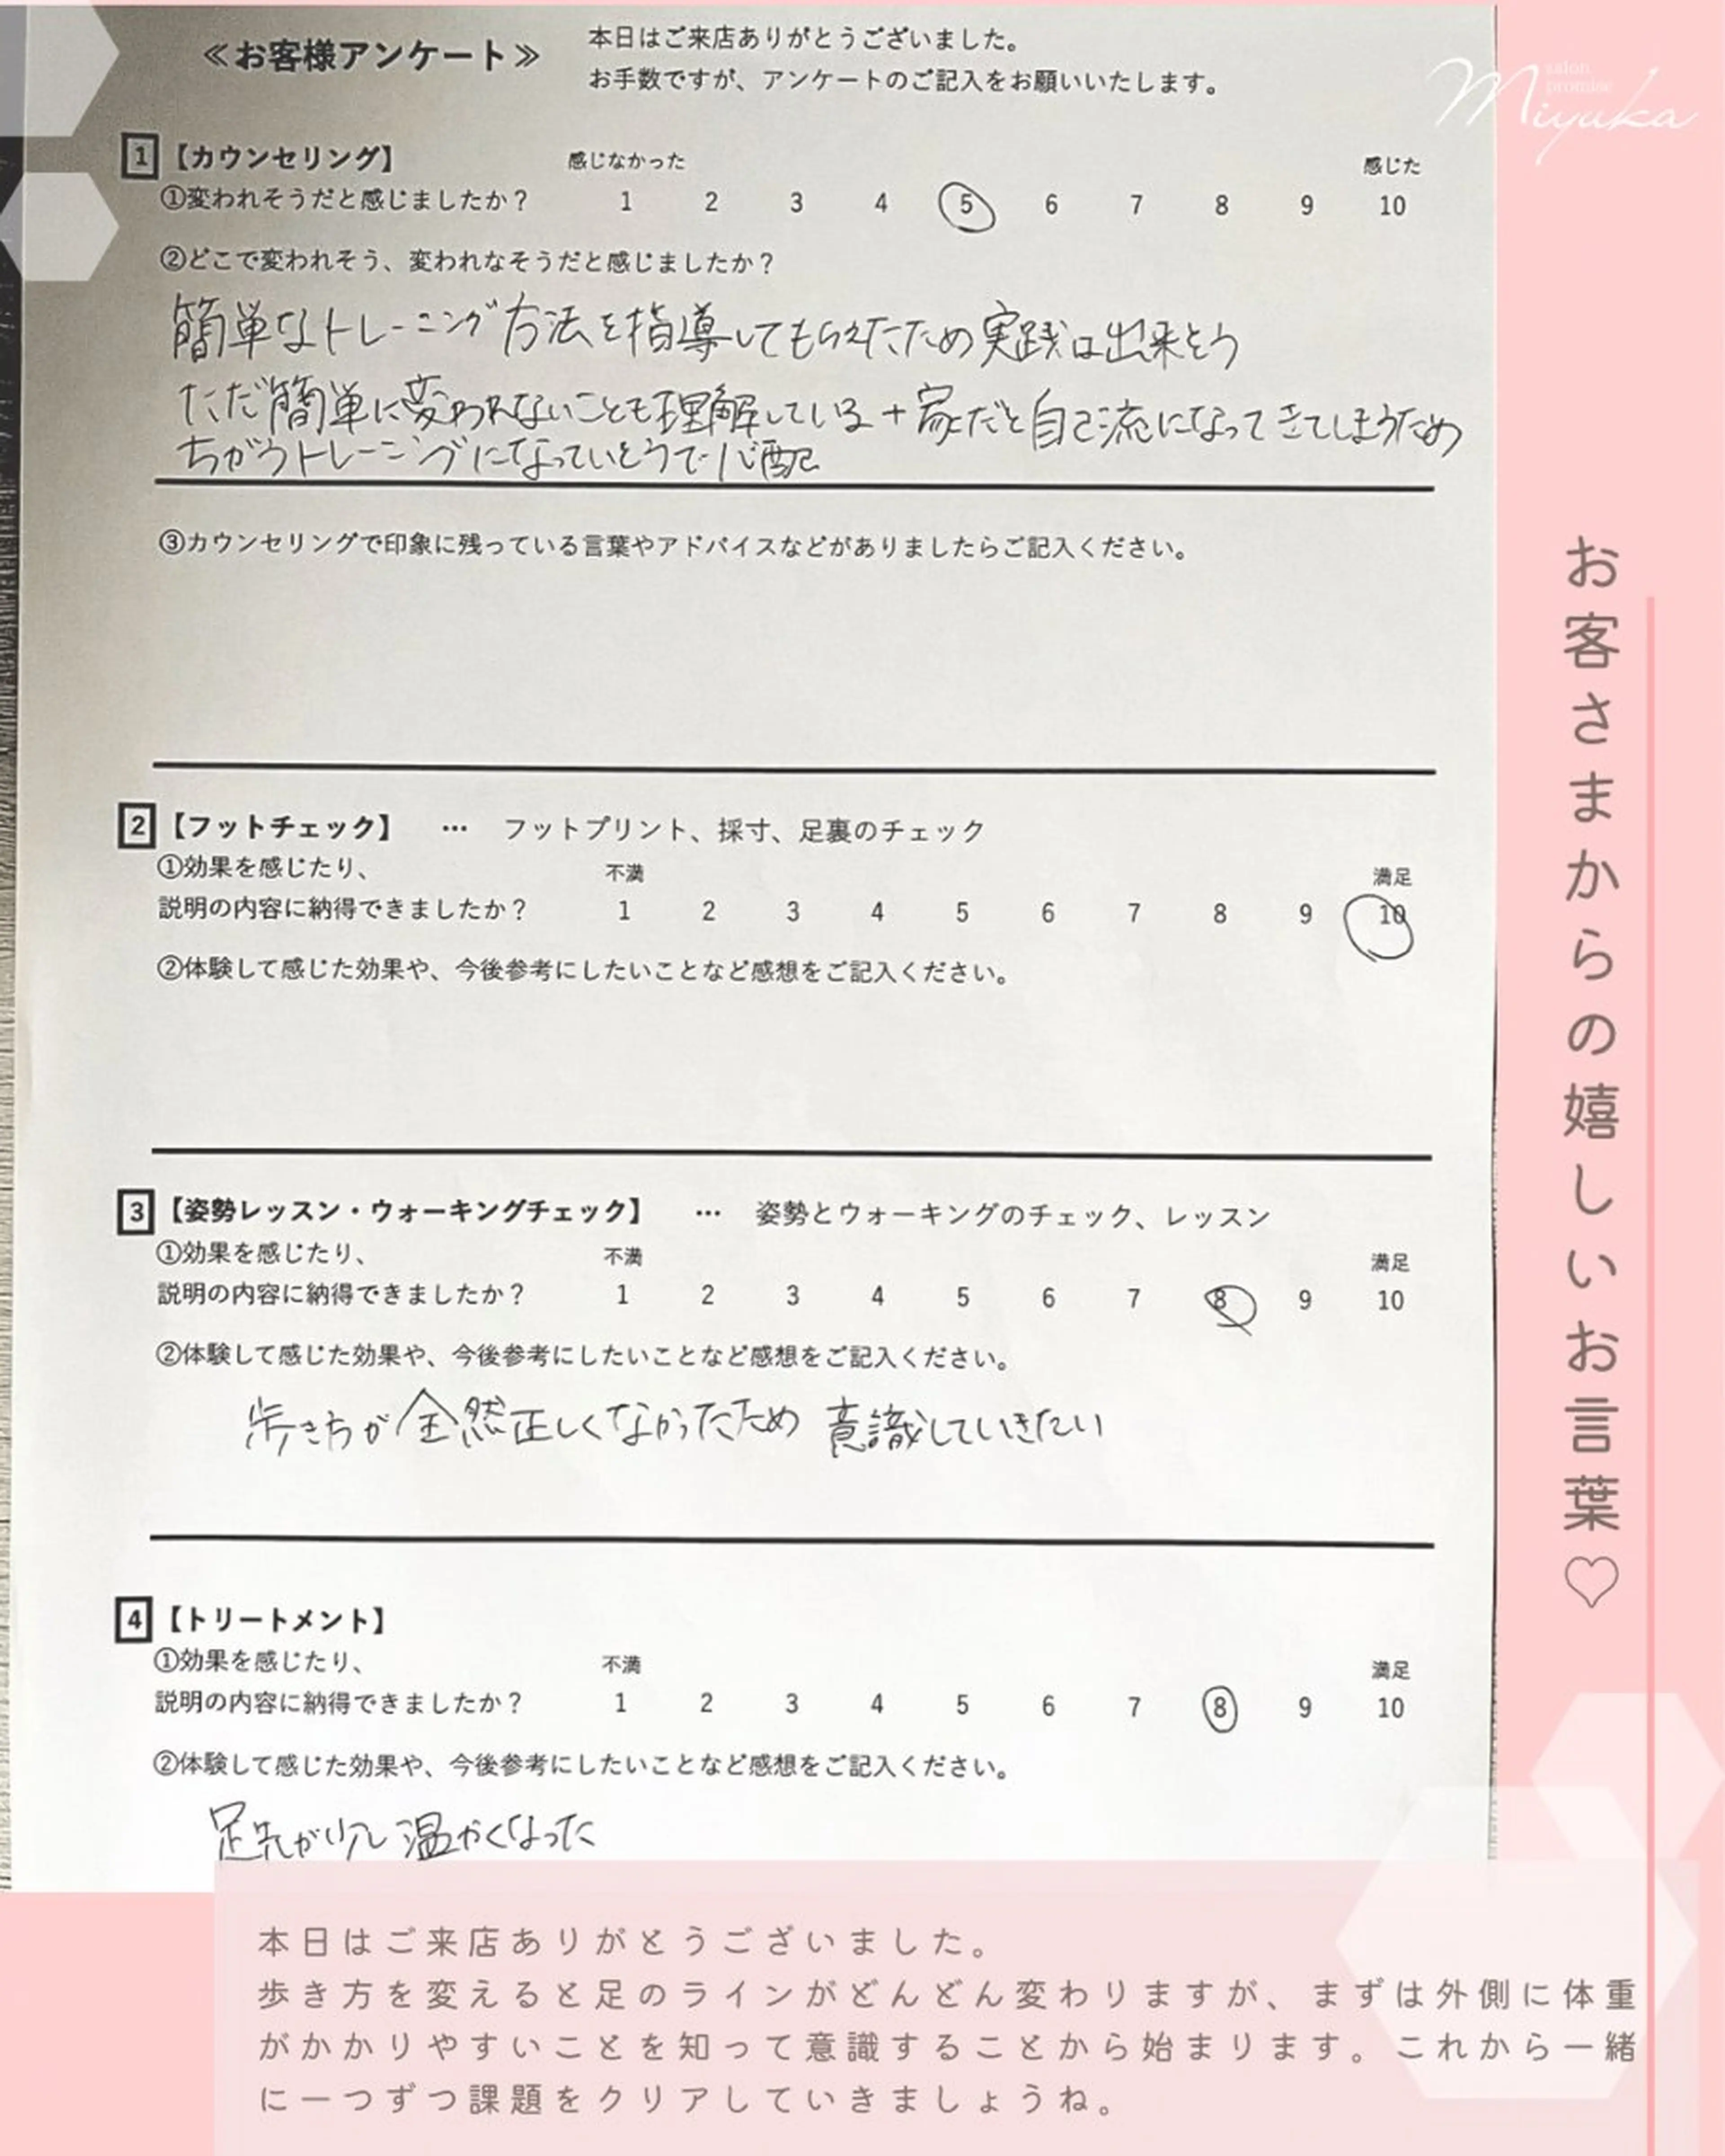 ≪お客様アンケート≫
本日はご来店ありがとうございました。
お手数ですが、アンケートのご記入をお願いいたします。
salon
promise
Miyuka
1 【カウンセリング】
感じなかった 感じた
①変われそうだと感じましたか？ 1 2 3 4 5 6 7 8 9 10
②どこで変われそう、変われなそうだと感じましたか？
簡単なトレーニング方法を指導してもらえたため実践は出来そう
ただ簡単に変われないことも理解している＋家だと自己流になってきてしまうため
ちがうトレーニングになっていそうで心配
③カウンセリングで印象に残っている言葉やアドバイスなどがありましたらご記入ください。
2 【フットチェック】 … フットプリント、採寸、足裏のチェック
①効果を感じたり、 不満 満足
説明の内容に納得できましたか？ 1 2 3 4 5 6 7 8 9 10
②体験して感じた効果や、今後参考にしたいことなど感想をご記入ください。
3 【姿勢レッスン・ウォーキングチェック】 … 姿勢とウォーキングのチェック、レッスン
①効果を感じたり、 不満 満足
説明の内容に納得できましたか？ 1 2 3 4 5 6 7 8 9 10
②体験して感じた効果や、今後参考にしたいことなど感想をご記入ください。
歩き方が全然正しくなかったため 意識していきたい
4 【トリートメント】
①効果を感じたり、 不満 満足
説明の内容に納得できましたか？ 1 2 3 4 5 6 7 8 9 10
②体験して感じた効果や、今後参考にしたいことなど感想をご記入ください。
足先が少し温かくなった
お客さまからの嬉しいお言葉♡
本日はご来店ありがとうございました。
歩き方を変えると足のラインがどんどん変わりますが、まずは外側に体重
がかかりやすいことを知って意識することから始まります。これから一緒
に一つずつ課題をクリアしていきましょうね。